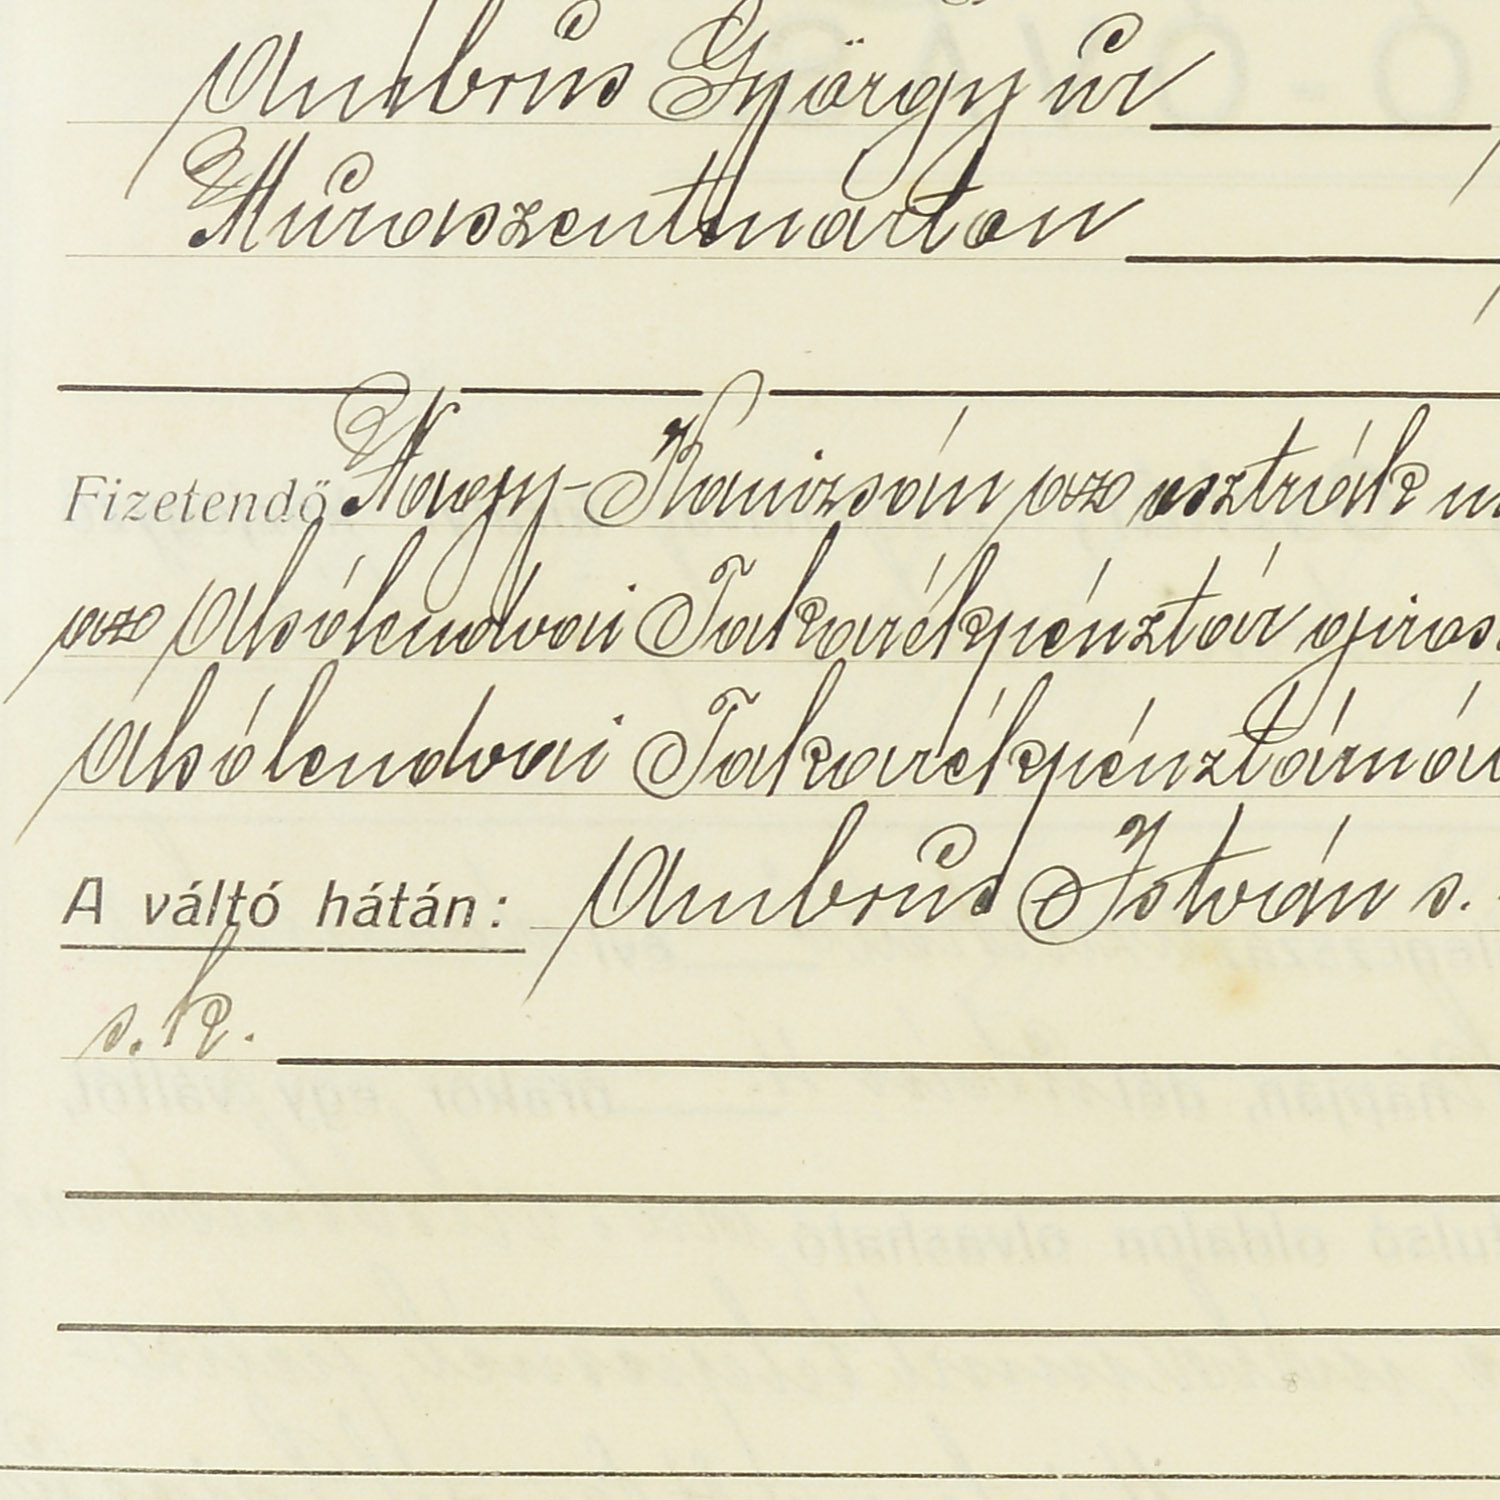 Ambrus György úr
Muraszentmárton
Fizetendő Nagy-Kanizsán az osztrák
az Alsólendvai Takarékpénztár
Alsólendvai Takarékpénztárnál
A váltó hátán: Ambrus István s.
s. k.